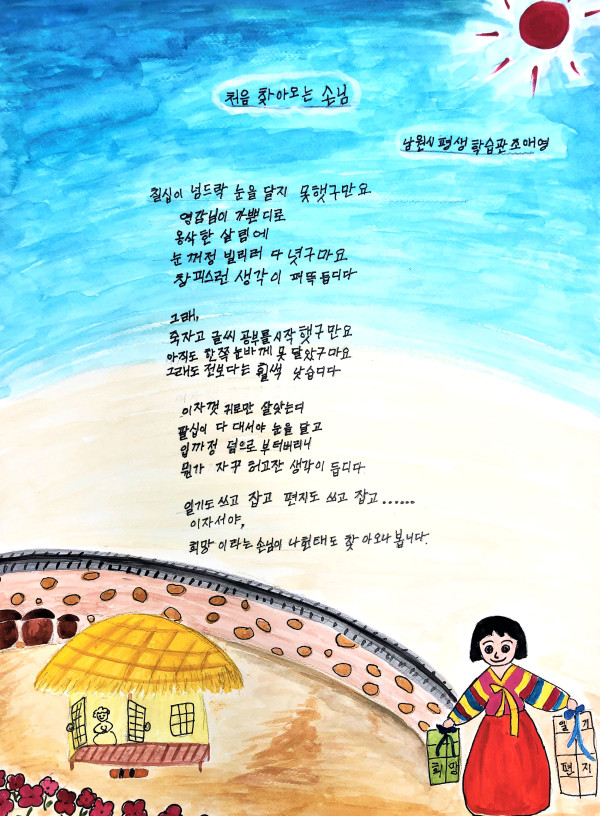 처음 찾아오는 손님
남원시 평생 학습관 조매영
칠십이 넘드락 눈을 달지 못했구만요
영감님이 가뿐디로
옹삭한 살림에
눈꺼정 빌리러 다녓구마요
창피스런 생각이 퍼뜩 듭디다
그래,
죽자고 글씨 공부를 시작 했구만요
아직도 한쪽 눈바께 못 달았구마요
그래도 전보다는 훨썩 낫습디다
이자껏 귀로만 살았는디
팔십이 다 대서야 눈을 달고
입까정 덤으로 부터버리니
뭔가 자꾸 허고잔 생각이 듭디다
일기도 쓰고 잡고 편지도 쓰고 잡고......
이자서야,
희망 이라는 손님이 나헌태도 찾아오나 봅니다.
희망
일기
편지